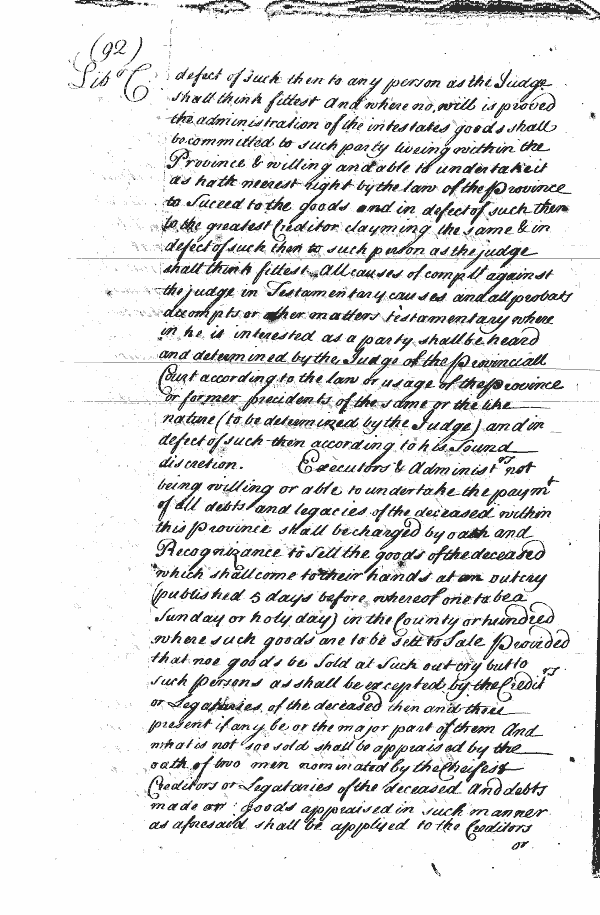 (92)
Lib.o C
defect of such then to any person as the Judge
shall think fittest And where no will is proved
the administration of the intestates goods shall
be committed to such party liveing within the
Province & willing and able to undertake it
as hath neerest right by the law of the Province
to Suceed to the goods and in defect of such then
to the greatest Creditor clayming the same & in
defect of such then to such person as the judge
shall think fittest. All causes of complt against
the judge in Testamentary causes and all probats
accompts or other matters testamentary where
in he is interested as a party shall be heard
and determined by the Judge of the Provinciall
Court according to the law or usage of the Province
or former precidents of the same or the like
nature (to be determined by the Judge) and in
defect of such then according to his Sound
discretion. Executors & Administrs not
being willing or able to undertake the paymt
of all debts and legacies of the deceased within
this Province shall be charged by oath and
Recognizance to sell the goods of the deceased
which shall come to their hands at an outcry
(published 3 days before, whereof one to be a
Sunday or holy day) in the County or hundred
where such goods are to be sett to Sale Provided
that noe goods be Sold at Such out cry but to
such persons as shall be excepted by the Creditrs
or Legataries of the deceased then and there
present if any be or the major part of them And
what is not soe sold shall be appraised by the
oath of two men nominated by the Cheifest
Creditors or Legataries of the deceased And debts
made or goods appraised in such manner
as aforesaid shall be applyed to the Creditors
or